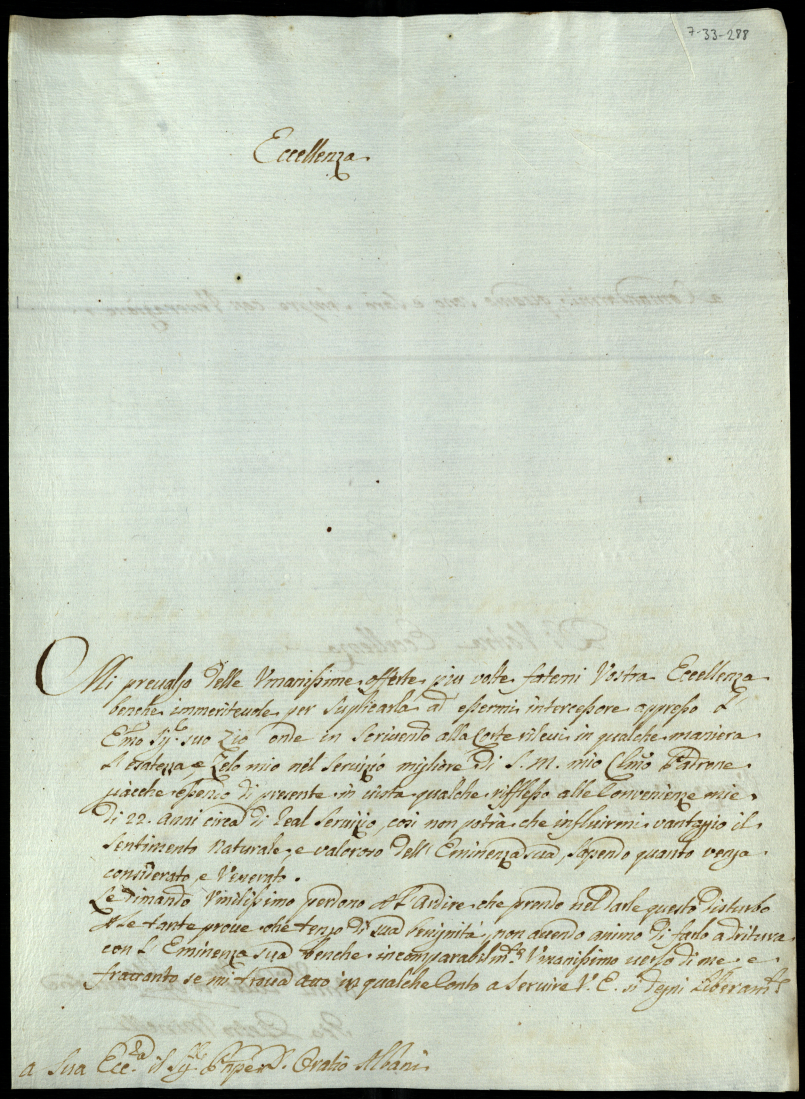 7-33-288
Eccellenza
Mi prevalso delle Umanissime offerte più volte fatemi Vostra Eccellenza
benche immeritevole per suplicarla ad essermi intercessore appresso l'
Emo Sig.r suo Zio onde in scrivendo alla Corte rilevi in qualche maniera
l'esatezza, e Zelo mio nel servizio migliore di S. M. mio Clmo Padrone
giacche essendo di presente in vista qualche riflesso alle Convenienze mie
di 22. anni circa di Real Servizio, così non potrà che influirmi vantaggio il
sentimento Naturale, e valoroso dell' Eminenza sua, sapendo quanto venga
considerato, e Venerato.
Le dimando Umilissimo perdono dell' Ardire che prendo nel darle questo disturbo
alle tante prove che tengo di sua benignità, non avendo animo di farlo adritura
con l' Eminenza sua benche incomparabilm.te Umanissimo verso di me, e
frattanto se mi trova atto in qualche Conto a servire V. E. si degni liberam.te
a Sua Ecc.za il Sig.r Pnpe D. Oratio Albani